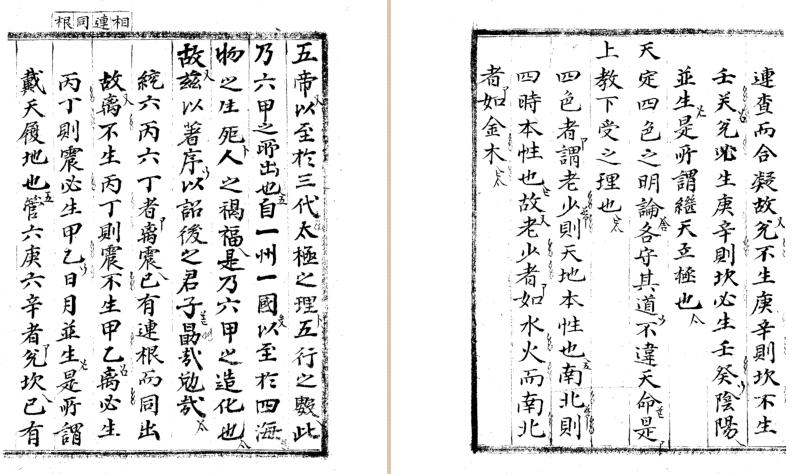 相連同根
五帝以至於三代太極之理五行之數此
乃六甲之所出也自一州一國以至於四海
物之生死人之禍福是乃六甲之造化也
故玆以著序以詔後之君子勗哉勉哉
統六丙六丁者离震已有連根而同出
故离不生丙丁則震不生甲乙离必生
丙丁則震必生甲乙日月並生是所謂
戴天履地也管六庚六辛者兌坎已有
連查而合凝故兌不生庚辛則坎不生
壬癸兌必生庚辛則坎必生壬癸陰陽
並生是所謂繼天立極也
天定四色之明論各守其道不違天命是
上教下受之理也
四色者謂老少則天地本性也南北則
四時本性也故老少者如水火而南北
者如金木